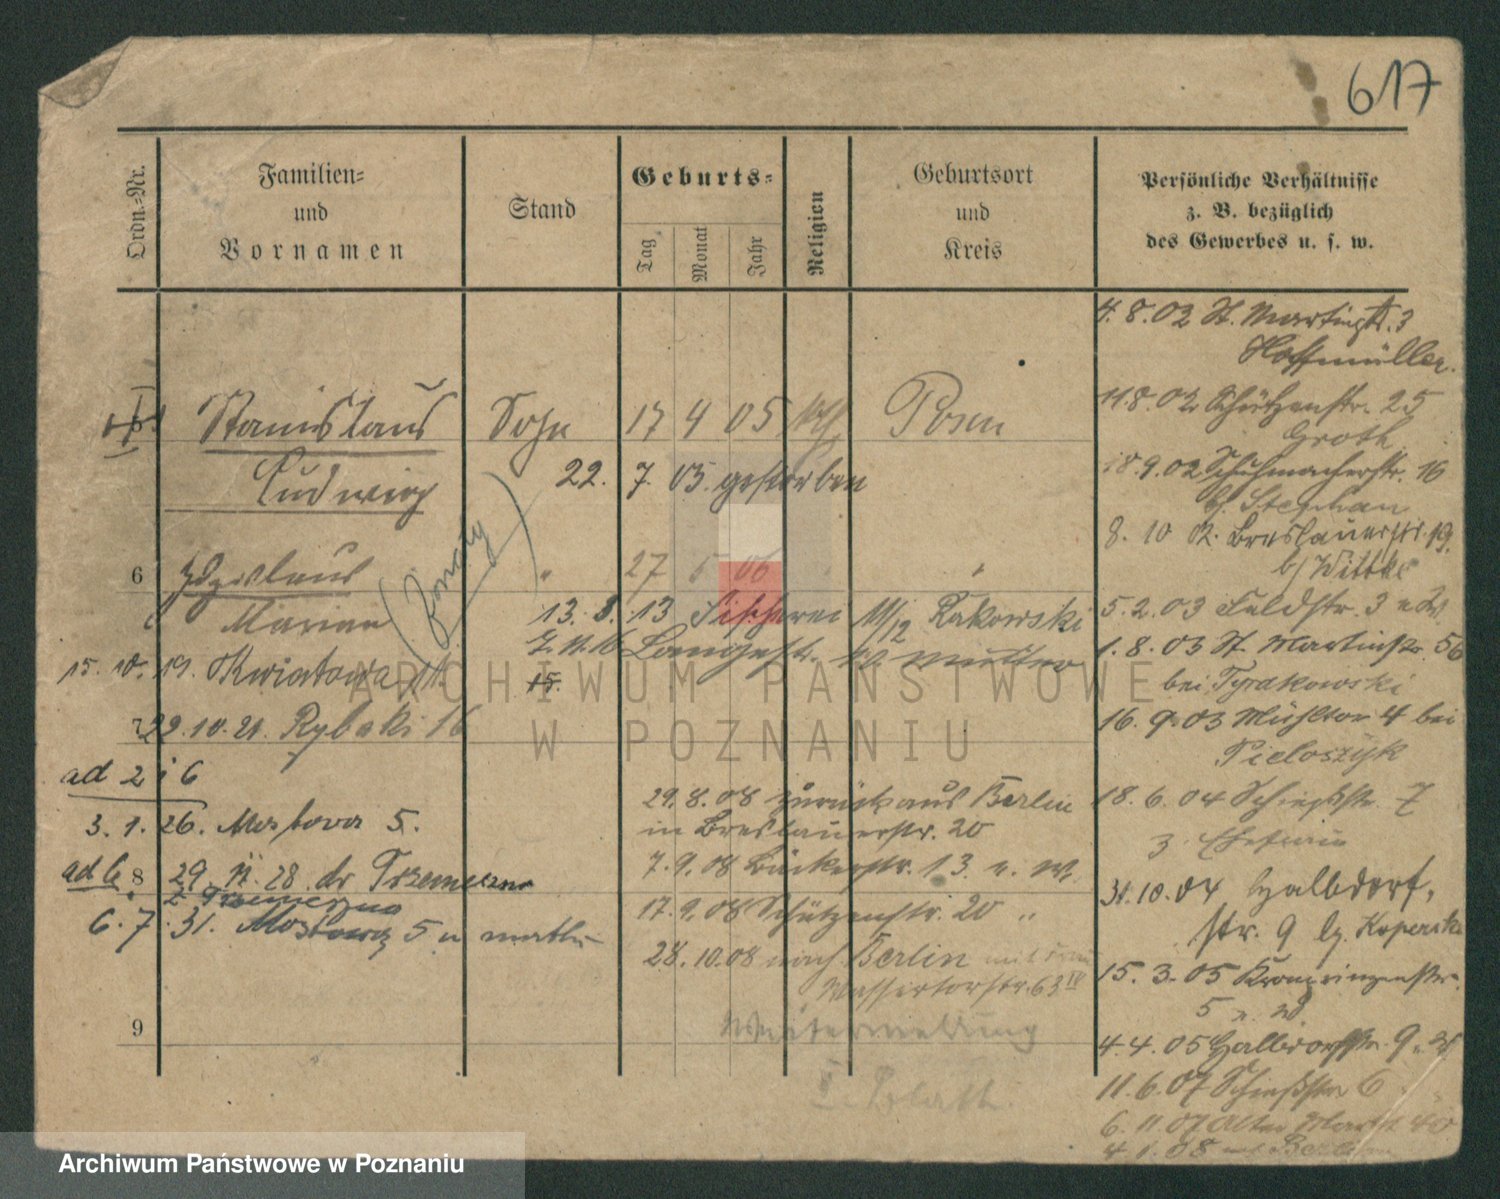 617
Ordn.-Nr.
Familien-
und
Vornamen
Stand
Geburts-
Tag
Monat
Jahr
Religion
Geburtsort
und
Kreis
Persönliche Verhältnisse
z. B. bezüglich
des Gewerbes u. s. w.
Stanislaus Sohn 17 4 05 Posen
Ludwig 22. 7. 05. gestorben
6 Zdzislaus " 27 5 06 "
Marian
(żonaty)
13. 8. 13 Fischerei 11/12 Rakowski
7. 11. 16 Langestr. Mutter
15. 10. 19. Kwiatowa
15.
7 22. 10. 21. Rybaki 16
ad 2 i 6
3. 1. 26. Mostowa 5.
ad 6 8 29. 11. 28. do Trzemeszna
z Trzemeszna
6. 7. 31. Mostowa 5 u matki
9
29. 8. 08 zurück aus Berlin
in Breslauerstr. 20
7. 9. 08 Bäckerstr. 13
17. 9. 08 Schützenstr. 20 "
28. 10. 08 nach Berlin mit Frau
Wassertorstr. 63 IV
4. 8. 02 St. Martinstr. 3
Hoffmüller.
11 8. 02 Schützenstr. 25
Groth
18. 9. 02 Schuhmacherstr. 16
b/ Stephan
8. 10 02. Breslauerstr. 19.
b/ Wittke
5. 2. 03 Feldstr. 3
1. 8. 03 St. Martinstr. 56
bei Tyrakowski
16. 9. 03 Mühltor 4 bei
Pieloszyk
18. 6. 04 Schießstr. 7
31. 10. 04 Halbdorf-
str. 9
15. 3. 05 Kronprinzenstr.
5
4. 4. 05 Halbdorfstr. 9
11. 6. 07 Schießstr 6
6. 11. 07 Alter Markt
4. 1. 08 Berlin
ARCHIWUM PAŃSTWOWE
W POZNANIU
Archiwum Państwowe w Poznaniu